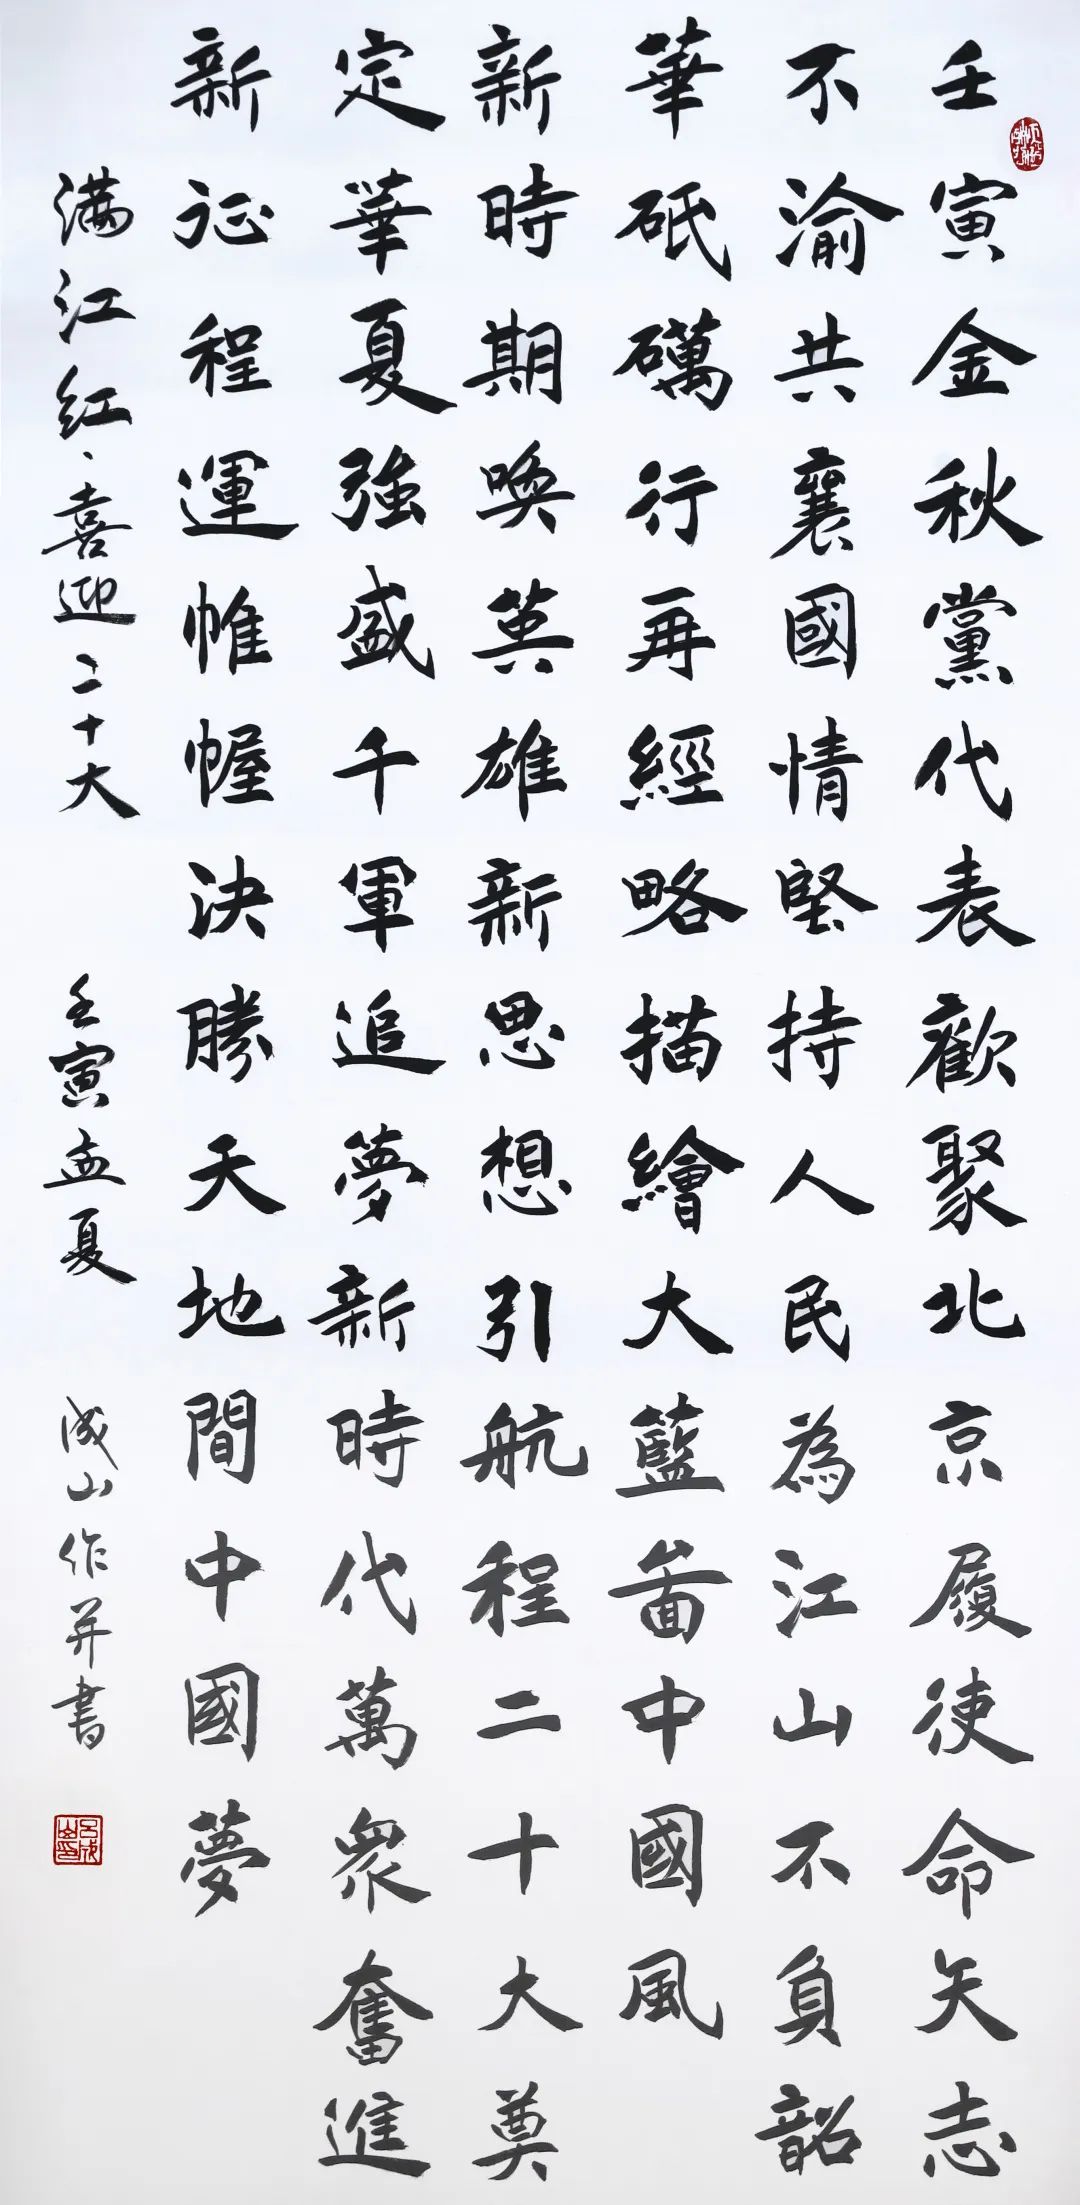 壬寅金秋黨代表歡聚北京履使命矢志
不渝共襄國情堅持人民為江山不負韶
華砥礪行再經略描繪大藍啚中國風
新時期喚英雄新思想引航程二十大奠
定華夏強盛千軍追夢新時代萬衆奮進
新征程運帷幄決勝天地間中國夢
满江红、喜迎二十大
壬寅孟夏 成山作并書